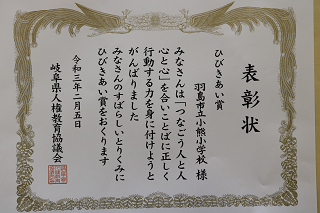 表彰状
ひびきあい賞
羽島市立小熊小学校 様
みなさんは「つなごう人と人
心と心」を合いことばに正しく
行動する力を身に付けようと
がんばりました
みなさんのすばらしいとりくみに
ひびきあい賞をおくります
令和三年二月五日
岐阜県人権教育協議会